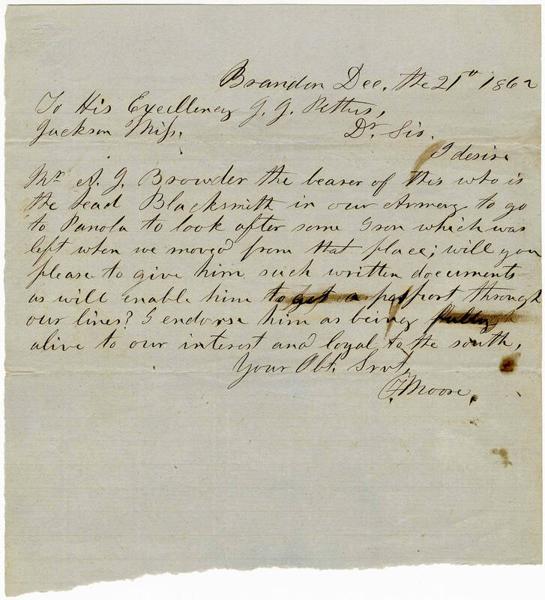 Brandon Dec, the 21st 1862
To His Excellency J. J. Pettus,
Jackson Miss. Dr. Sir.
I desire
Mr A. J. Browder the bearer of this who is
the head Blacksmith in our Armory to go
to Panola to look after some Iron which was
left when we moved from that place; will you
please to give him such written documents
as will enable him to get a passport through
our lines? I endorse him as being fully
alive to our interest and loyal to the south,
Your Obt. Srvt,
Moore,